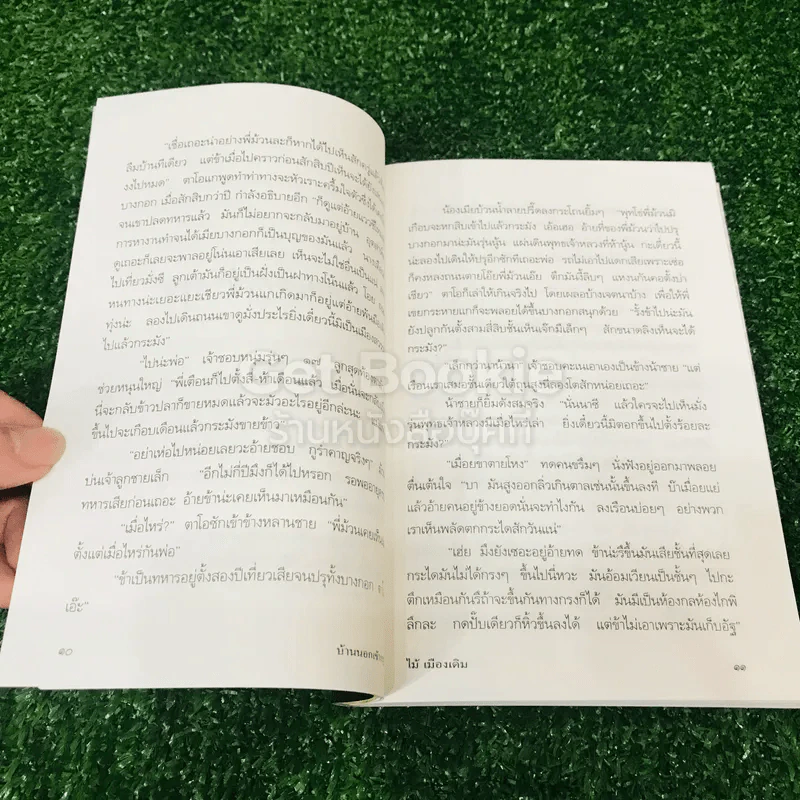 "เชื่อเถอะน่าอย่างพี่ม้วนละก็หากได้ไปเห็นสักครู่แล้ว
ลืมบ้านทีเดียว แต่ข้าเมื่อไปคราวก่อนสักสิบปีเห็นจะได้
งงไปหมด" ตาโอแกพูดทำท่าทางจะหัวเราะครึ้มใจตัวซึ่งได้
บางกอก เมื่อสักสิบกว่าปี กำลังอธิบายอีก "ก็ดูแต่อ้ายแววซี
จนเขาปลดทหารแล้ว มันก็ไม่อยากจะกลับมาอยู่บ้าน
การหางานทำจนได้เมียบางกอกก็เป็นบุญของมันแล้ว
ดูเถอะก็เลยจะพาลอยู่โน่นเอาเสียเลย เห็นจะไม่ใช่อื่น
ไปเที่ยวมั่งซี ลูกเต้ามันก็อยู่เป็นฝั่งเป็นฝาทางโน้นแล้ว โดย
หนทางน่ะเยอะแยะเชียวพี่ม้วนแกเกิดมาก็อยู่แต่อ้ายพันนี้
ทุ่งน่ะ ลองไปเดินถนนเขาดูมั่งประไรยิ่งเดี๋ยวนี้มีเป็นเมือง
ไปแล้วกระมัง"
"ไปน่ะพ่อ" เจ้าชอบหนุ่มรุ่นๆ ๑๗ ลูกสุดท้อง
ช่วยหนุนใหญ่ "พี่เตือนก็ไปตั้งสี่-ห้าเดือนแล้ว เมื่อนั่น
นี่จะกลับข้าวปลาก็ขายหมดแล้วจะมัวอะไรอยู่อีกล่ะนะ
ขึ้นไปจะเกือบเดือนแล้วกระมังขายข้าว"
"อย่าเห่อไปหน่อยเลยวะอ้ายชอบ กูรำคาญจริงๆ"
บ่นเจ้าลูกชายเล็ก "อีกไม่กี่ปีมึงก็ได้ไปหรอก รอพอ
ทหารเสียก่อนเถอะ อ้ายข้าน่ะเคยเห็นมาเหมือนกัน"
"เมื่อไหร่?" ตาโอซักเข้าข้างหลานชาย "พี่ม้วนเคยเห็น
ตั้งแต่เมื่อไหร่กันพ่อ"
"ข้าเป็นทหารอยู่ตั้งสองปีเที่ยวเสียจนปรุทั้งบางกอก
เอ๊ะ"
๑๐
บ้านนอกเข้า
น้องเมียบ้วนน้ำลายปรี๊ดลงกาะโถนยิ้มๆ "พุทโธ่พี่ม้วนมิ
เกือบจะหกสิบเข้าไปแล้วกระมัง เด้อเฮอ อ้ายที่ของพี่ม้วนว่าไปปรุ
บางกอกมาน่ะมันรุ่นนู้น แผ่นดินพุทธเจ้าหลวงที่ห้านู้น กะเดี๋ยวนี้
น่ะลองไปเดินให้ปรุอีกซักทีเถอะพ่อ รังไม่เอาไปแดกเสียเพราะเซ่อ
ก็คงหลงถนนตายโต๊ะพี่ม้วนเอ๊ย ตึกมันรี้ลิบๆ แหงนกันคอตั้งบ่า
เชียว" ตาโอก็เล่าให้เกินจริงไป โดยเผลอบ้างเจตนาบ้าง เพื่อให้พี่
เขยกระหายแกก็จะพลอยได้ขึ้นบางกอกสนุกด้วย "รั้งข้าไปน่ะมัน
ยังปลูกกันตั้งสามสี่สิบชั้นเห็นเจ๊กมีเล็กๆ สักขนาดลิงเห็นจะได้
กระมัง?"
"เล็กกว่านาน้าน่า" เจ้าชอบคะเนเอาเองเป็นข้างน้าชาย "แต่
เรือนเราเสมอชั้นเดียวใต้ถุนสูงนี่ลองโดสักหน่อยเถอะ"
น้าชายก็ยิ้มดังสมจริง "นั่นนาซี แล้วใครจะไปเห็นมั่ง
รุ่นพุทธเจ้าหลวงมีเมื่อไหร่ล่า ยิ่งเดี๋ยวนี้มิตอกขึ้นไปตั้งร้อยละ
กระมัง?"
"เมื่อยขาตายโหง" ทดคนขรึมๆ นั่งฟังอยู่ออกมาพลอย
ตื่นเต้นใจ "บา มันสูงออกลิ่วเกินตาลเช่นนั้นขึ้นลงที บ๊าเมื่อยแย่
แล้วอ้ายคนอยู่ข้างยอดนั่นจะทำไงกัน ลงเรือนบ่อยๆ อย่างพวก
เราเห็นพลัดตกกระไดสักวันแน่"
"เฮ่ย มึงยังเซอะอยู่อ้ายทด ข้าน่ะรีขึ้นมันเสียชั้นที่สุดเลย
กระไดมันไม่ได้กรงๆ ขึ้นไปนี่หวะ มันอ้อมเวียนเป็นชั้นๆ ไปกะ
ตึกเหมือนกันรีถ้าจะขึ้นกันทางกรงก็ได้ มันมีเป็นห้องกลห้องไกพิ
ลึกละ กดปั๊บเดียวก็หิ้วขึ้นลงได้ แต่ข้าไม่เอาเพราะมันเก็บอัฐ"
ไม้ เมืองเดิม
๑๑
Get Bookie
ร้านหนังสือบุ๊คกี้